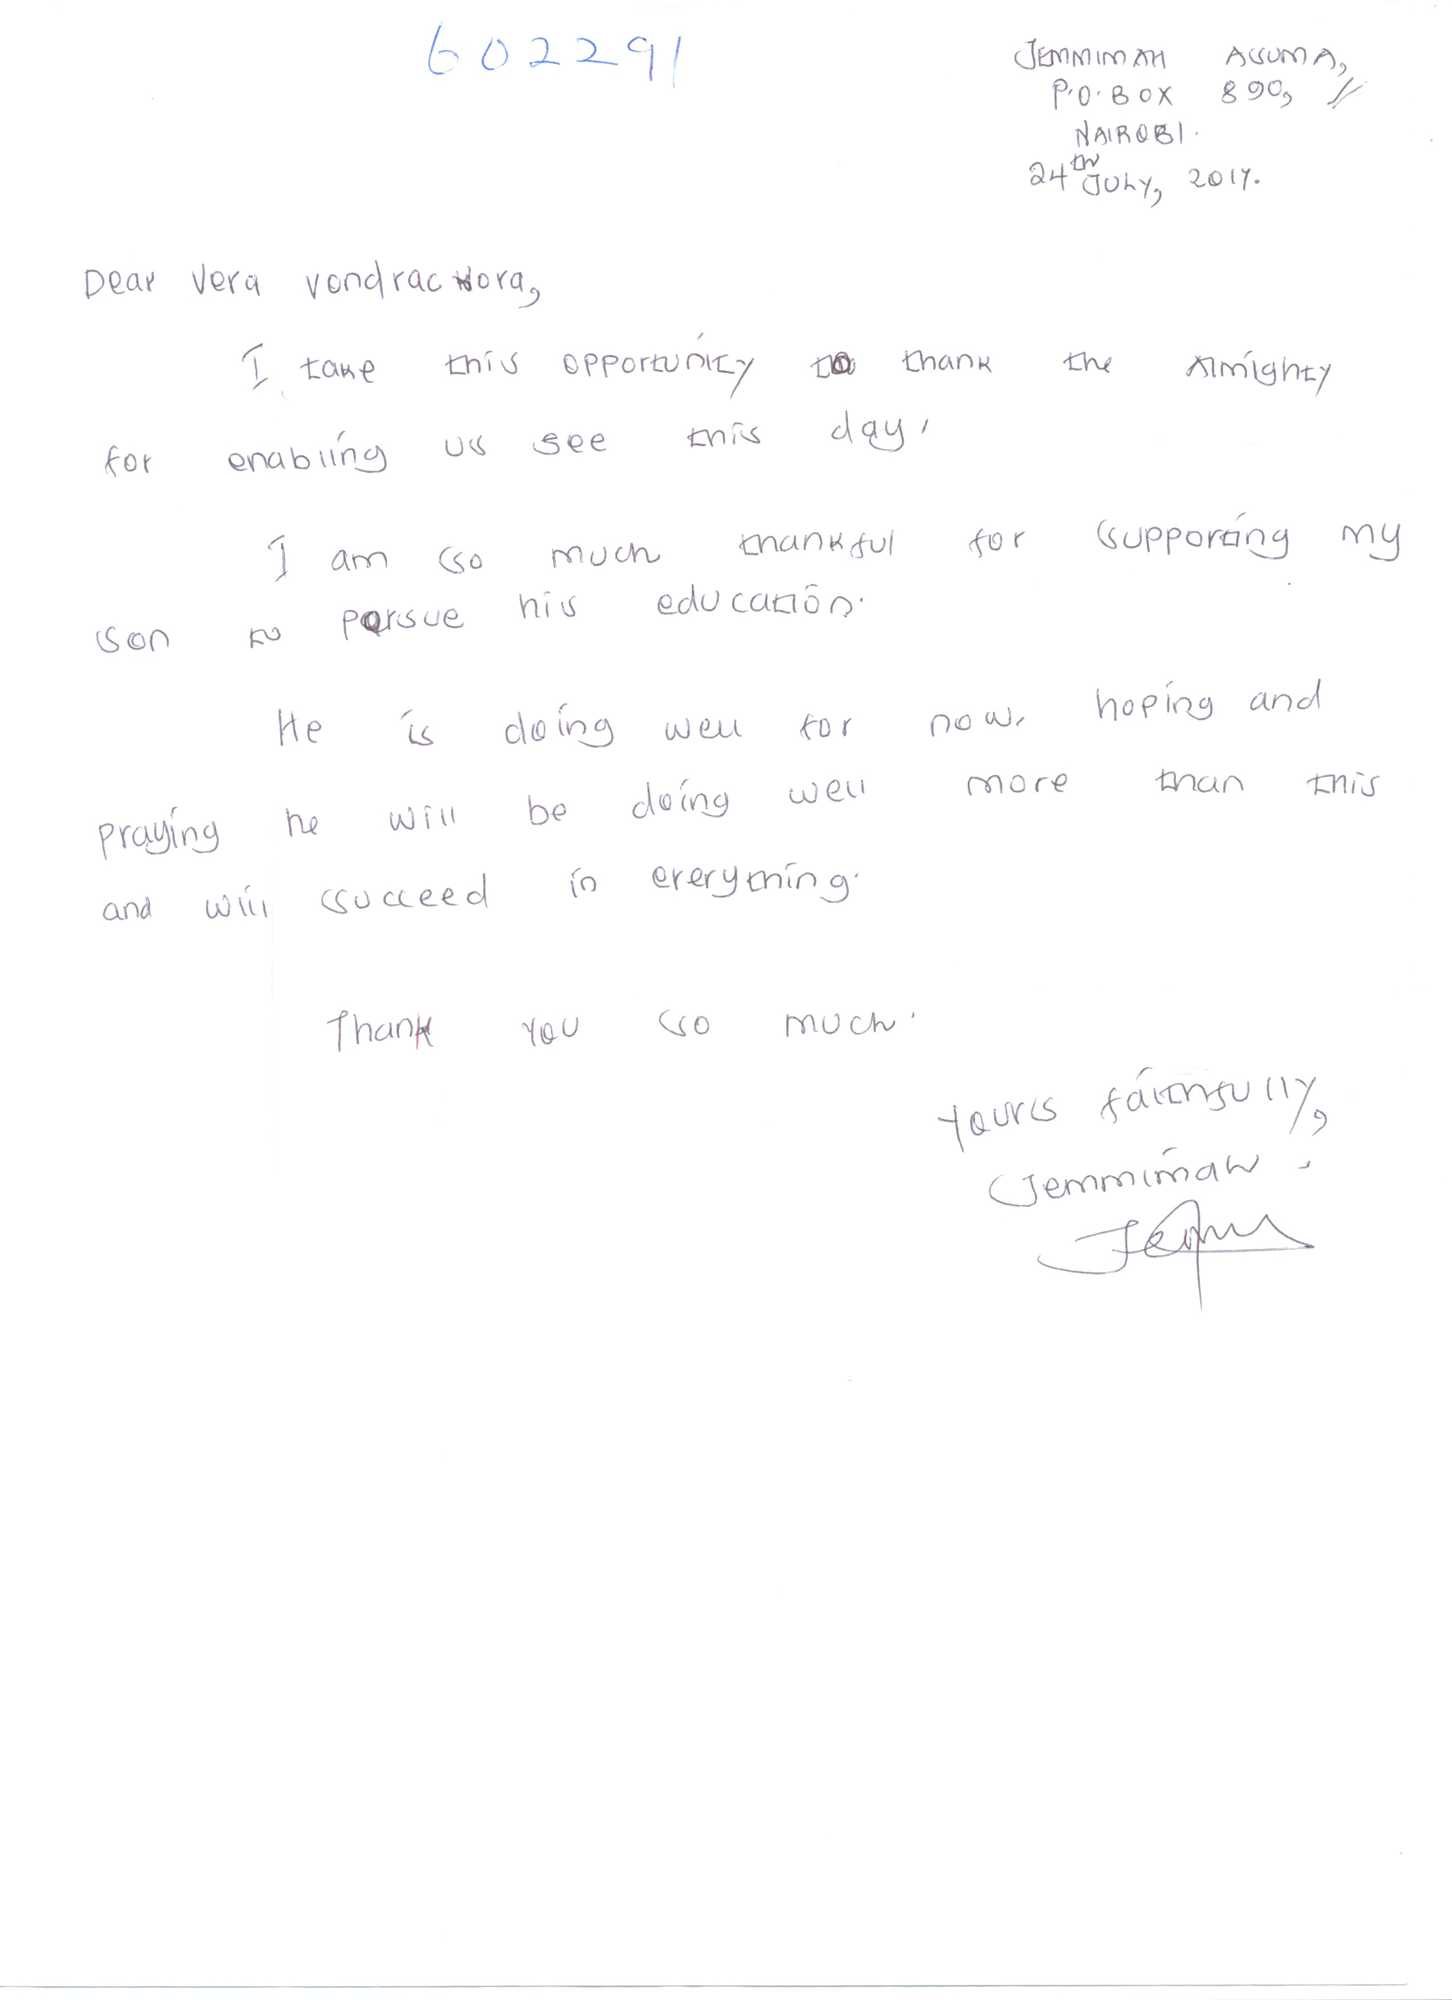 602291
JEMMIMAH ASUMA,
P.O. BOX 890,
NAIROBI.
24th JULY, 2017.
Dear Vera Vondrackora,
I take this opportunity to thank the Almighty
for enabling us see this day.
I am so much thankful for supporting my
son to persue his education.
He is doing well for now, hoping and
praying he will be doing well more than this
and will succeed in everything.
Thank you so much.
Yours faithfully,
Jemmimah.